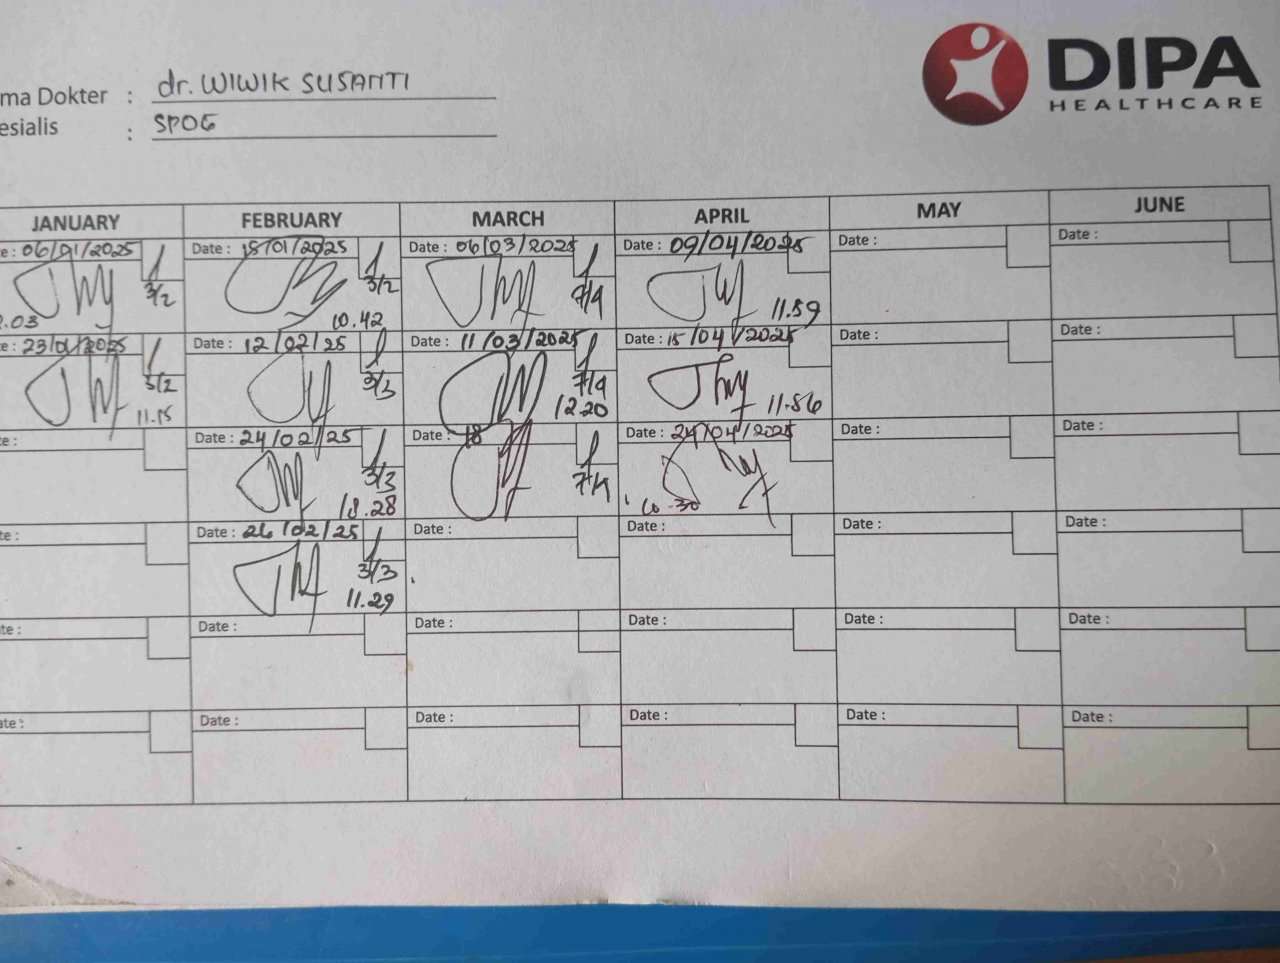 DIPA
HEALTHCARE
ma Dokter : dr. WIWIK SUSANTI
esialis : SPOG
JANUARY FEBRUARY MARCH APRIL MAY JUNE
e: 06/01/2025 Date : 18/01/2025 Date : 06/03/2025 Date : 09/04/2025 Date : Date :
3/2 3/2 7/4
.03 10.42 11.59
e: 23/01/2025 Date : 12/02/25 Date : 11/03/2025 Date : 15/04/2025 Date : Date :
3/2 3/3 7/4
11.15 12.20 11.56
e: Date : 24/02/25 Date : 18 Date : 24/04/2025 Date : Date :
3/3 7/4
18.28 10.30
te: Date : 26/02/25 Date : Date : Date : Date :
3/3
11.29
te: Date : Date : Date : Date : Date :
ate: Date : Date : Date : Date : Date :